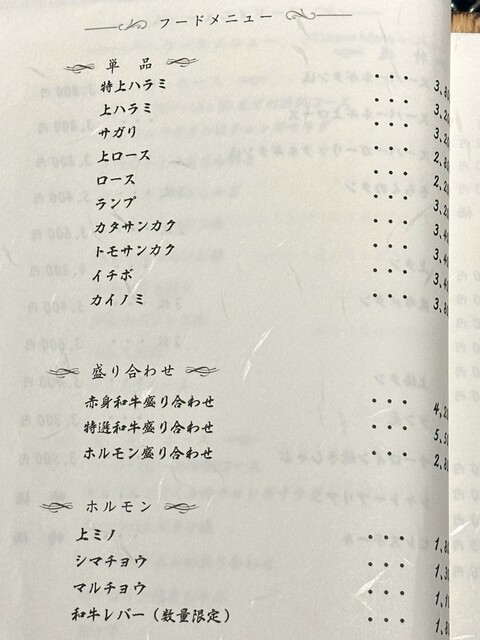 フードメニュー
単品
特上ハラミ ・・・ 3,80
上ハラミ ・・・ 3,20
サガリ ・・・ 3,20
上ロース ・・・ 2,80
ロース ・・・ 2,20
ランプ ・・・ 3,20
カタサンカク ・・・ 3,40
トモサンカク ・・・ 3,40
イチボ ・・・ 3,40
カイノミ ・・・ 3,80
盛り合わせ
赤身和牛盛り合わせ ・・・ 4,20
特選和牛盛り合わせ ・・・ 5,50
ホルモン盛り合わせ ・・・ 2,80
ホルモン
上ミノ ・・・ 1,80
シマチョウ ・・・ 1,30
マルチョウ ・・・ 1,10
和牛レバー（数量限定） ・・・ 1,80